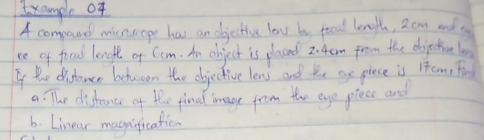 Example 07
A compound microscope has an objective lens by focal length, 2cm and
ce of focal length of 6cm. An object is placed 2.4cm from the objective lens
If the distance between the objective lens and the eye piece is 17cm, Find
a. The distance of the final image from the eye piece and
b. Linear magnification